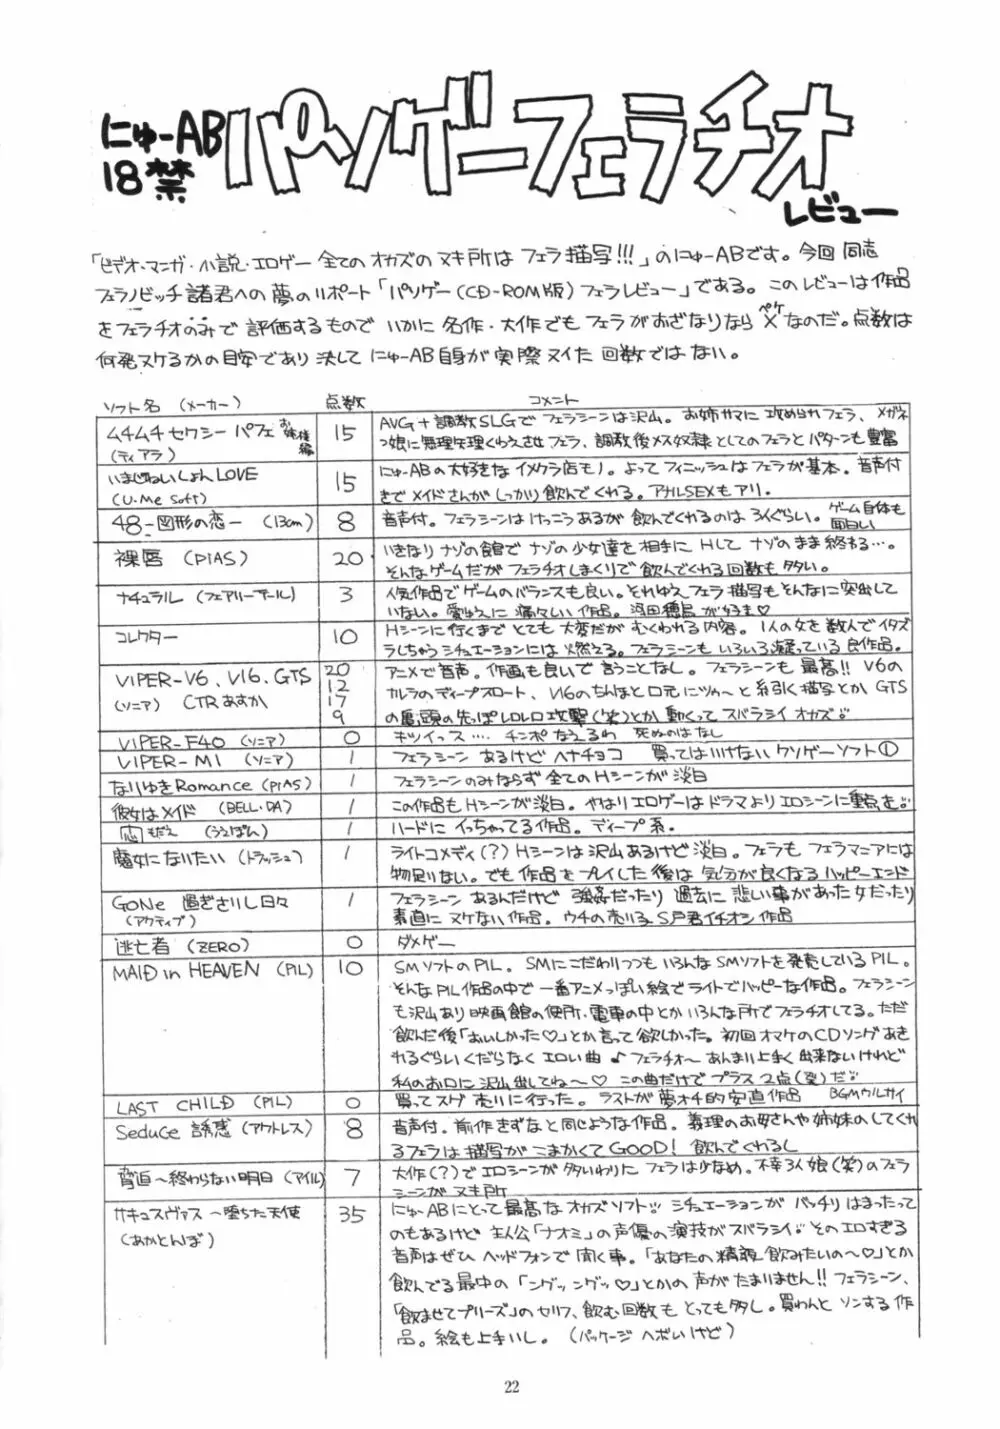 にゅーAB
18禁
パソゲーフェラチオ
レビュー
「ビデオ・マンガ・小説・エロゲー 全てのオカズのヌキ所は フェラ描写!!!」のにゅーABです。今回 同志
フェラノビッチ諸君への夢のリポート「パソゲー(CD-ROM版)フェラレビュー」である。このレビューは作品
をフェラチオのみで評価するもので いかに 名作・大作でも フェラがおざなりなら ×ペケ なのだ。点数は
何発ヌケるかの目安であり決して にゅーAB自身が実際ヌイた回数ではない。
ソフト名 (メーカー) 点数 コメント
ムチムチセクシーパフェ お姉様編
(ティアラ)
15
AVG+調教SLGで フェラシーンは沢山。お姉サマに攻められフェラ、メガネ
っ娘に無理矢理くわえさせフェラ、調教後メス奴隷としてのフェラとパターンも豊富
いまじねいしょんLOVE
(U・Me Soft)
15
にゅーABの大好きなイメクラ店モノ。よってフィニッシュはフェラが基本。音声付
きでメイドさんがしっかり飲んでくれる。アナルSEXもアリ.
48-図形の恋- (13cm)
8
音声付。フェラシーンはけっこうあるが 飲んでくれるのは 3人ぐらい。 ゲーム自体も
面白い
裸唇 (PIAS)
20
いきなりナゾの館で ナゾの少女達を相手に Hして ナゾのまま終わる…。
そんなゲームだが フェラチオしまくりで 飲んでくれる回数も多い。
ナチュラル (フェアリーテール)
3
人気作品でゲームのバランスも良い。それゆえフェラ描写もそんなに突出して
いない。愛ゆえに痛々しい作品。 が好き♡
コレクター
10
Hシーンに行くまで とても 大変だが むくわれる内容。 1人の女を数人でイタズ
ラしちゃう シチュエーションには 燃える。フェラシーンもいろいろ凝っている 良作品。
VIPER-V6、V16、GTS
(ソニア) CTRあすか
20
12
17
9
アニメで音声。作画も良いで言うことなし。 フェラシーンも 最高!! V6の
カルラのディープスロート、V16のちんぽと口元にツゥ〜と糸引く描写とか GTS
の亀頭の先っぽレロレロ攻撃(笑)とか 動くって スバラシイ オカズ!!
VIPER-F40 (ソニア)
0
キツイっス…. チンポなえるわ 死ぬのはなし
VIPER-M1 (ソニア)
1
フェラシーン あるけど ヘナチョコ 買ってはいけない クソゲーソフト①
なりゆきRomance (PIAS)
1
フェラシーンのみならず 全てのHシーンが淡白
彼女はメイド (BELL・DA)
1
この作品も Hシーンが淡白。やはりエロゲーはドラマよりエロシーンに重点を!!
恋もだえ (うえぽん)
1
ハードに イっちゃってる作品。ディープ系.
魔女になりたい (トラッシュ)
1
ライトコメディ(?) Hシーンは沢山あるけど 淡白。フェラも フェラマニアには
物足りない。でも 作品を プレイした後は 気分が良くなる ハッピーエンド
GONE 過ぎさりし日々
(アクティブ)
1
フェラシーン あるんだけど 強姦だったり 過去に 悲しい事があった女だったり
素直に ヌケない 作品。ウチの売り子 S戸君イチオシ作品
逃亡者 (ZERO)
0
ダメゲー
MAID in HEAVEN (PIL)
10
SMソフトのPIL。SMにこだわりつつも いろんなSMソフトを発売しているPIL。
そんな PIL作品の中で 一番アニメっぽい絵でライトでハッピーな作品。フェラシーン
も沢山あり 映画館の便所・電車の中とか いろんな所でフェラチオしてる。ただ
飲んだ後「おいしかった♡」とか言って欲しかった。初回オマケのCDソングあき
れるぐらい くだらなく エロい曲 ♪ フェラチオ〜 あんまり上手く 出来ないけれど
私のお口に 沢山出してね〜♡ この曲だけで プラス2点(愛)だ!!
LAST CHILD (PIL)
0
買ってスグ 売りに行った。 ラストが夢オチ的安直作品 BGMウルサイ
Seduce 誘惑 (アウトレス)
8
音声付。前作きずなと同じような作品。義理のお母さんや姉妹のしてくれ
るフェラは描写が こまかくて GOOD! 飲んでくれるし
脅迫〜終わらない明日 (アイル)
7
大作(?)で エロシーンが 多いわりに フェラは少なめ。不幸3人娘(笑)のフェラ
シーンが ヌキ所
サキュスヴァス〜堕ちた天使
(あかとんぼ)
35
にゅーABにとって最高なオカズソフトッッ シチュエーションが バッチリはまったって
のもあるけど 主人公「ナオミ」の声優の演技がスバラシイ!!そのエロすぎる
音声はぜひ ヘッドフォンで 聞く事。「あなたの精液飲みたいの〜♡」とか
飲んでる最中の「ングッ ングッ♡」とかの声がたまりません!! フェラシーン、
「飲ませてプリーズ」のセリフ、飲む回数も とっても多し。買わんと ソンする作
品。絵も上手いし。 (パッケージ ヘボいけど)
22